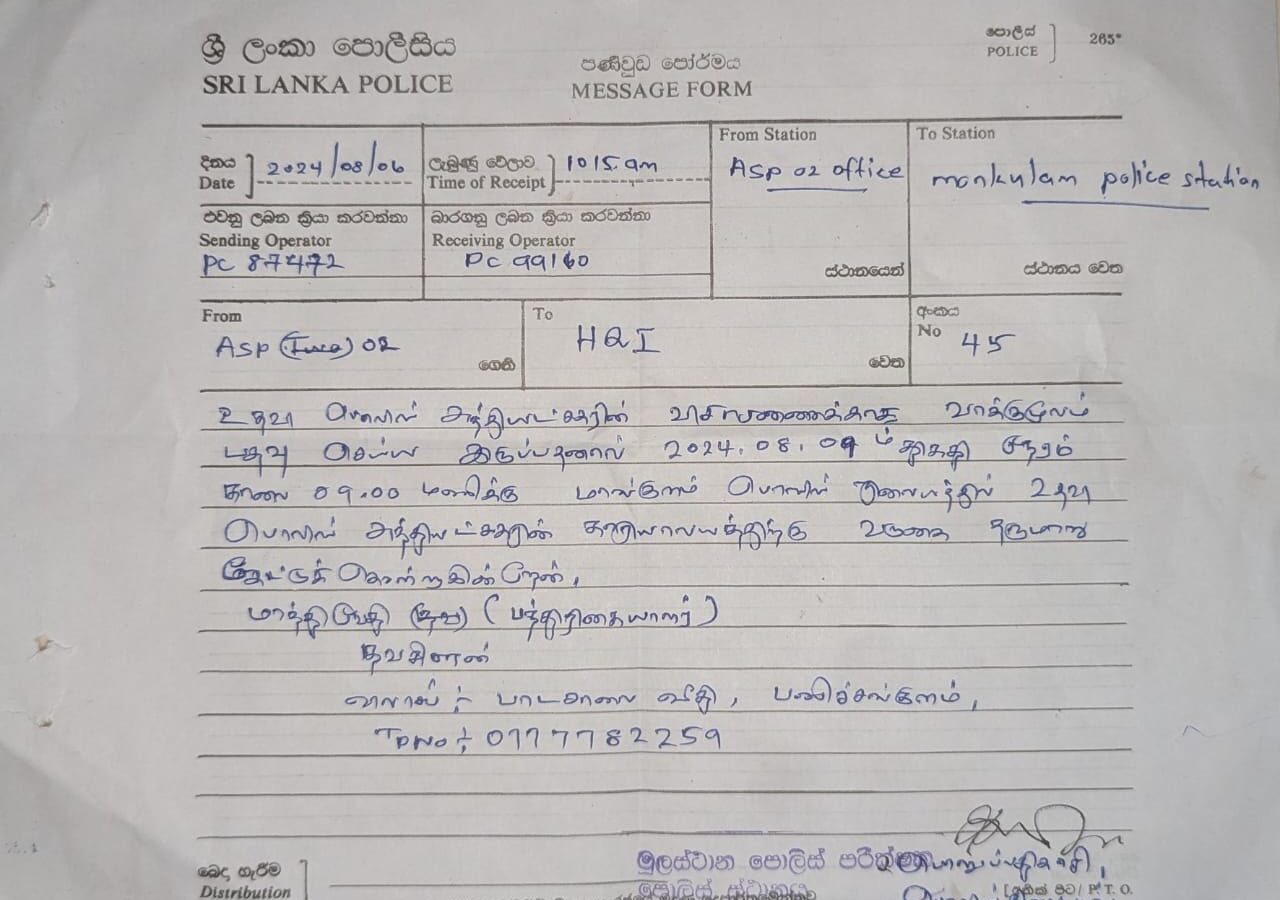 ශ්‍රී ලංකා පොලීසිය
SRI LANKA POLICE
පණිවුඩ පෝර්මය
MESSAGE FORM
පොලිස්
POLICE
265
දිනය
Date
2024/08/06
ලැබුණු වේලාව
Time of Receipt
1015.am
From Station
ASP 02 office
ස්ථානයෙන්
To Station
monkulam police station
ස්ථානය වෙත
එවනු ලබන ක්‍රියා කරවන්නා
Sending Operator
PC 87472
බාරගනු ලබන ක්‍රියා කරවන්නා
Receiving Operator
PC 99160
From
ASP 02
ගෙනි
To
HQI
වෙත
අංකය
No
45
உதவி பொலிஸ் அத்தியட்சகரின் விசாரணைக்காக வாக்குமூலம்
பதிவு செய்ய இருப்பதனால் 2024.08.09 ம் திகதி
காலை 09.00 மணிக்கு மாங்குளம் பொலிஸ் நிலையத்தில் உதவி
பொலிஸ் அத்தியட்சகரின் காரியாலயத்திற்கு வருகை தருமாறு
கேட்டுக் கொள்கின்றேன்,
(பத்திரிகையாளர்)
தவசீலன்
விலாசம் :- பாடசாலை வீதி, பணிச்சங்குளம்,
TP No :- 0777782259
මූලස්ථාන පොලිස් පරීක්ෂක
පොලිස් ස්ථානය
බෙදා හැරීම
Distribution
P. T. O.